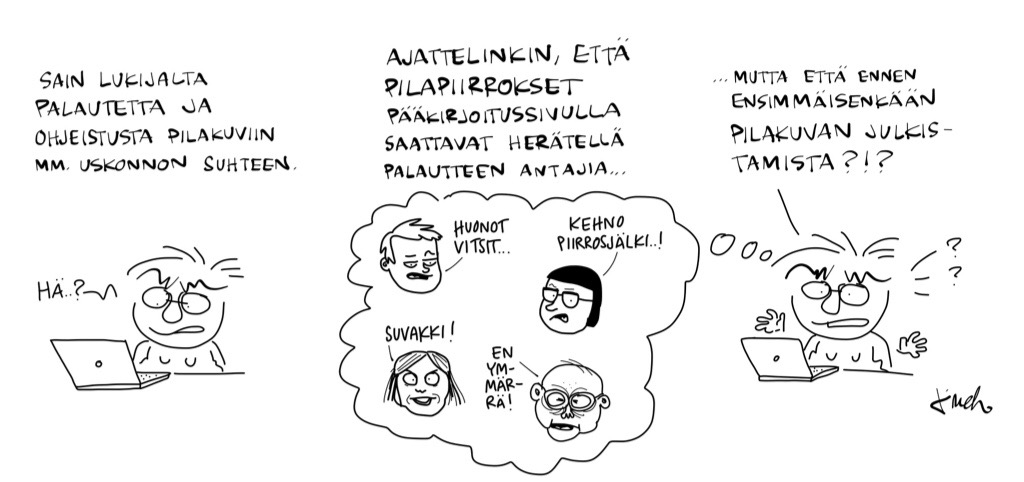 SAIN LUKIJALTA
PALAUTETTA JA
OHJEISTUSTA PILAKUVIIN
MM. USKONNON SUHTEEN.
HÄ..?
AJATTELINKIN, ETTÄ
PILAPIIRROKSET
PÄÄKIRJOITUSSIVULLA
SAATTAVAT HERÄTELLÄ
PALAUTTEEN ANTAJIA...
HUONOT
VITSIT...
KEHNO
PIIRROSJÄLKI..!
SUVAKKI!
EN
YM-
MÄR-
RÄ!
...MUTTA ETTÄ ENNEN
ENSIMMÄISENKÄÄN
PILAKUVAN JULKIS-
TAMISTA?!?
?
?